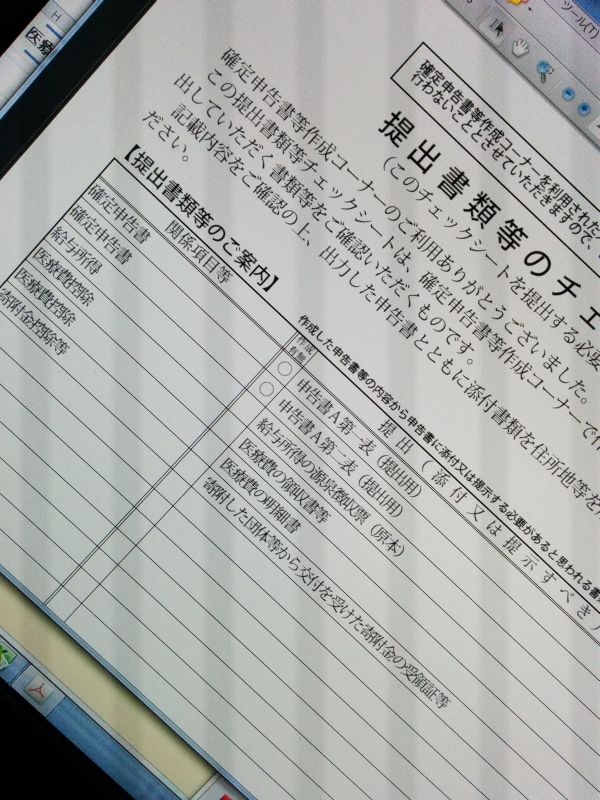 ツール(T)
H
医療
確定申告書等作成コーナーを利用された
行わないこととさせていただきますので、
提出書類等のチェ
(このチェックシートを提出する必要
確定申告書等作成コーナーのご利用ありがとうございました。
この提出書類等チェックシートは、確定申告書等作成コーナーで作
出していただく書類等をご確認いただくものです。
記載内容をご確認の上、出力した申告書とともに添付書類を住所地等を
ださい。
【提出書類等のご案内】
作成した申告書等の内容から申告書に添付又は提示する必要があると思われる書
関係項目等
作成有無
提出(添付又は提示すべき)
確定申告書
○
申告書A第一表(提出用)
確定申告書
○
申告書A第二表(提出用)
給与所得
給与所得の源泉徴収票(原本)
医療費控除
医療費の領収書等
医療費控除
医療費の明細書
寄附金控除等
寄附した団体等から交付を受けた寄附金の受領証等